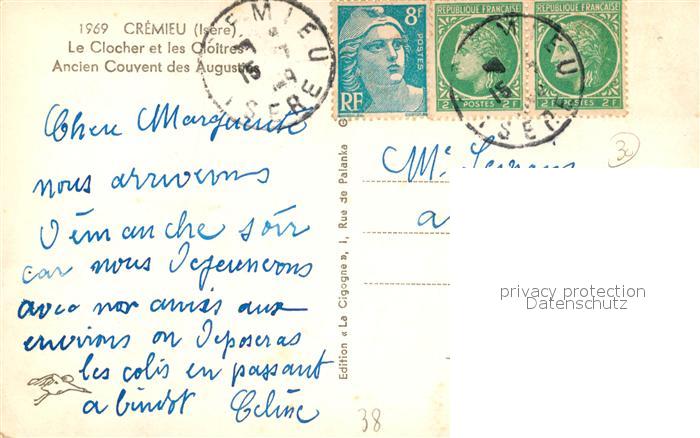 1969 CRÉMIEU (Isère)
Le Clocher et les Cloîtres
Ancien Couvent des Augustins
CREMIEU
ISERE
8F
POSTES
RF
REPUBLIQUE FRANÇAISE
2F POSTES 2F
REPUBLIQUE FRANÇAISE
2F POSTES 2F
CREMIEU
ISERE
Chere Marguerite
nous arriverons
Dimanche soir
car nous Dejeunerons
avec nos amis aux
environs on Deposeras
les colis en passant
a Celine
Edition « La Cigogne », 1, Rue de Palanka
Me
a
30
38
privacy protection
Datenschutz